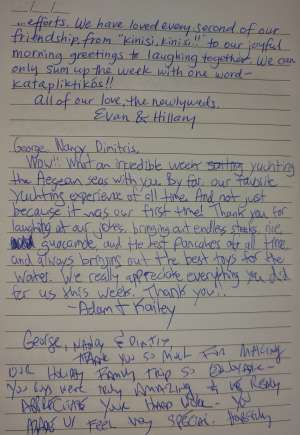 ...efforts. We have loved every second of our
friendship from "kinisi, kinisi" to our joyful
morning greetings to laughing together. We can
only sum up the week with one word-
Katapliktikos!!
All of our love, the newlyweds,
Evan & Hillary
George, Nancy, Dimitris,
Wow!! What an incredible week yachting
the Aegean seas with you. By far our favorite
yachting experience of all time. And not just
because it was our first time! Thank you for
laughing at our jokes, bringing out endless
guacamole and the best pancakes of all time,
and always bringing out the best toys for the
water. We really appreciate everything you did
for us this week. Thank you!!
-Adam & Kailey
George, Nancy &
Thank you so much for making
our Family trip so
You guys were truly amazing & we really
appreciate your hard work - you
made us feel very special.